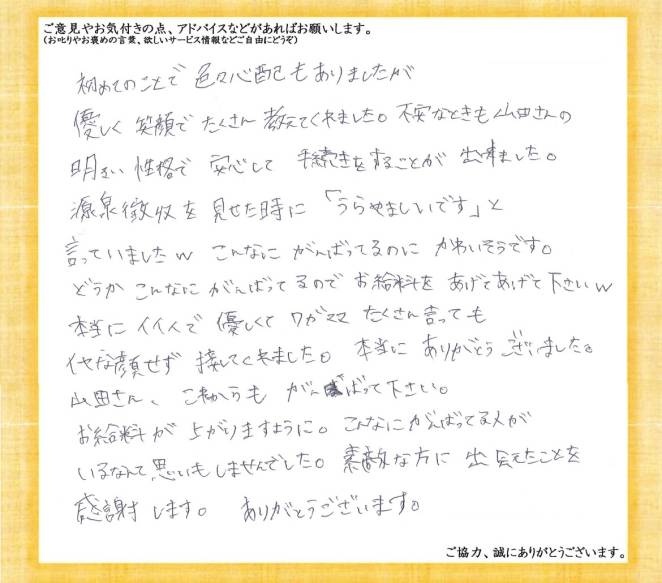 ご意見やお気付きの点、アドバイスなどがあればお願いします。
(お叱りやお褒めの言葉、欲しいサービス情報などご自由にどうぞ)
初めてのことで 色々心配もありましたが
優しく 笑顔で たくさん 教えてくれました。不安なときも 山田さんの
明るい 性格で 安心して 手続きをすることが 出来ました。
源泉徴収を 見せた時に 「うらやましいです」と
言っていましたw こんなに がんばってるのに かわいそうです。
どうか こんなに がんばってるので お給料を あげてあげて下さいw
本当に イイ人で 優しくて ワガママ たくさん言っても
イヤな顔せず 接してくれました。本当に ありがとう ございました。
山田さん、 これからも がんばって下さい。
お給料が 上がりますように。こんなにがんばってる人が
いるなんて 思いもしませんでした。素敵な方に 出会えたことを
感謝します。 ありがとうございます。
ご協力、誠にありがとうございます。